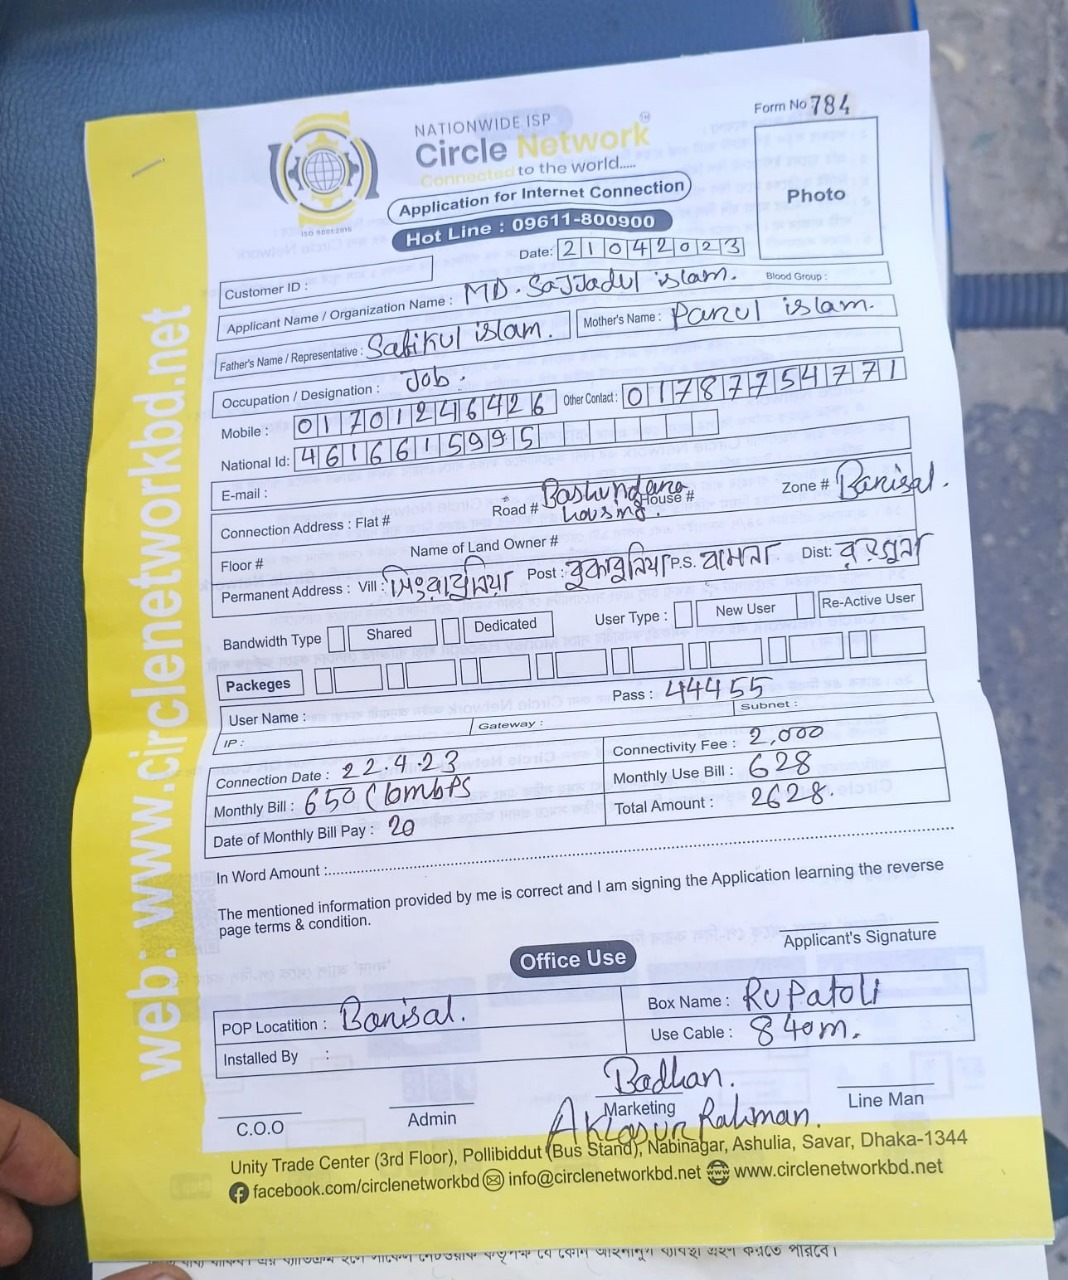 Form No 784
NATIONWIDE ISP
Circle Network
Connected to the world.....
Photo
Application for Internet Connection
Hot Line : 09611-800900
ISO 9001:2015
Date: 21042023
Customer ID :
Blood Group :
Applicant Name / Organization Name : MD. Sajjadul islam.
Father's Name / Representative : Safikul islam. Mother's Name : Parul islam.
Occupation / Designation : Job.
Mobile : 01701246426 Other Contact : 01787754771
National Id: 4616615995
E-mail :
Connection Address : Flat # Road # Bashundara housing. House # Zone # Barisal.
Floor # Name of Land Owner #
Permanent Address : Vill : Post : বুকাবুনিয়া P.S. বামনা Dist: বরগুনা
Bandwidth Type Shared Dedicated User Type : New User Re-Active User
Packeges
User Name : Pass : 44455
IP : Gateway : Subnet :
Connection Date : 22.4.23 Connectivity Fee : 2,000
Monthly Bill : 650 (10mbPS Monthly Use Bill : 628
Date of Monthly Bill Pay : 20 Total Amount : 2628.
In Word Amount :
The mentioned information provided by me is correct and I am signing the Application learning the reverse
page terms & condition.
Applicant's Signature
Office Use
POP Locatition : Barisal. Box Name : RuPatoli
Installed By : Use Cable : 840m.
Badhan.
C.O.O Admin Marketing Line Man
Rahman.
Unity Trade Center (3rd Floor), Pollibiddut (Bus Stand), Nabinagar, Ashulia, Savar, Dhaka-1344
facebook.com/circlenetworkbd info@circlenetworkbd.net www.circlenetworkbd.net
web: www.circlenetworkbd.net